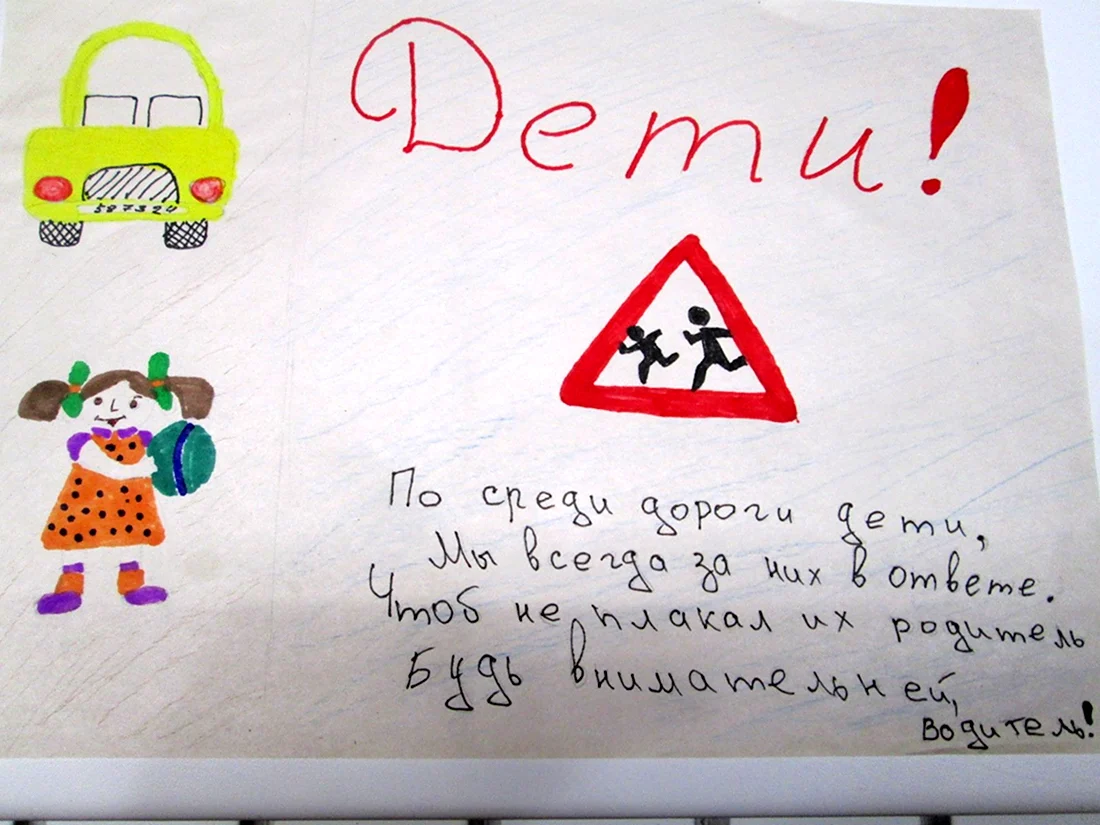 Дети!
587324
По среди дороги дети,
Мы всегда за них в ответе.
Чтоб не плакал их родитель
Будь внимательней,
водитель!